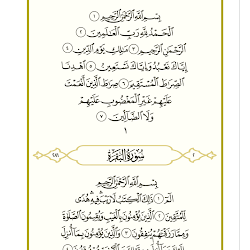 بِسْمِ ٱللَّهِ ٱلرَّحْمَٰنِ ٱلرَّحِيمِ ١
ٱلْحَمْدُ لِلَّهِ رَبِّ ٱلْعَٰلَمِينَ ٢
ٱلرَّحْمَٰنِ ٱلرَّحِيمِ ٣ مَٰلِكِ يَوْمِ ٱلدِّينِ ٤
إِيَّاكَ نَعْبُدُ وَإِيَّاكَ نَسْتَعِينُ ٥ ٱهْدِنَا
ٱلصِّرَٰطَ ٱلْمُسْتَقِيمَ ٦ صِرَٰطَ ٱلَّذِينَ أَنْعَمْتَ
عَلَيْهِمْ غَيْرِ ٱلْمَغْضُوبِ عَلَيْهِمْ
وَلَا ٱلضَّآلِّينَ ٧
١
٢ سُورَةُ ٱلْبَقَرَةِ
بِسْمِ ٱللَّهِ ٱلرَّحْمَٰنِ ٱلرَّحِيمِ
الٓمٓ ١ ذَٰلِكَ ٱلْكِتَٰبُ لَا رَيْبَ فِيهِ هُدًى
لِّلْمُتَّقِينَ ٢ ٱلَّذِينَ يُؤْمِنُونَ بِٱلْغَيْبِ وَيُقِيمُونَ ٱلصَّلَوٰةَ
وَمِمَّا رَزَقْنَٰهُمْ يُنفِقُونَ ٣ وَٱلَّذِينَ يُؤْمِنُونَ بِمَآ أُنزِلَ